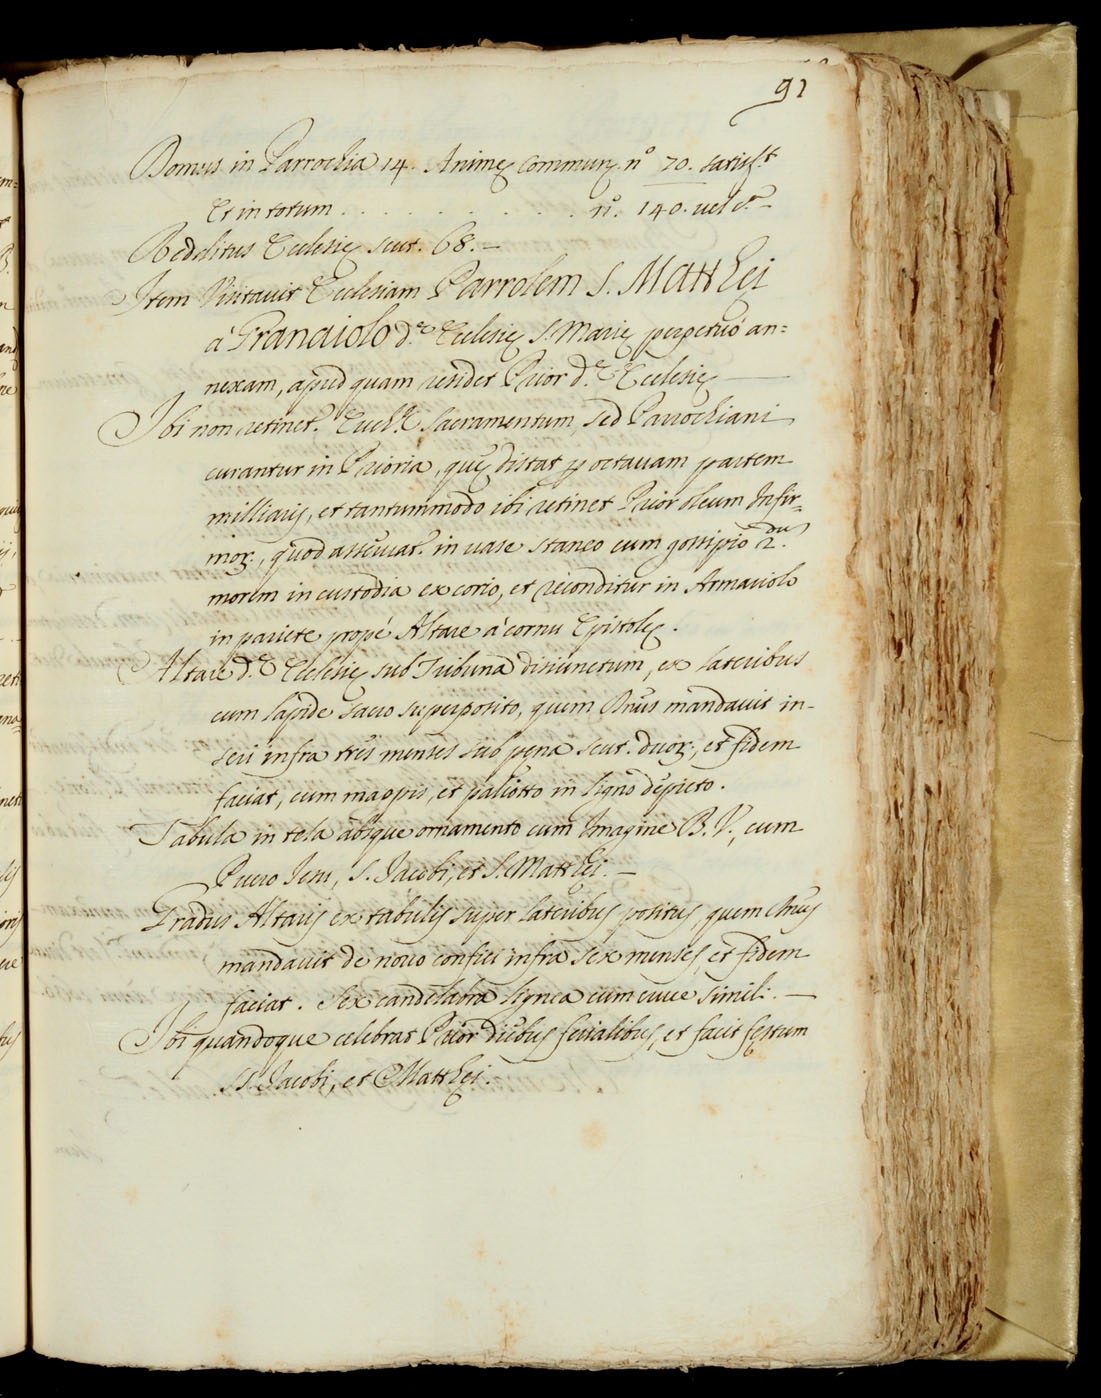 91
Domus in Parrochia 14. Animę Commun. nº 70. satisf.t
Et in totum . . . . . . . . . . . nº. 140. vel c.a
Redditus Ecclesię scut. 68. —
Item Visitavit Ecclesiam Parrolem S. Matthei
à Granaiolo d.ę Ecclesię S. Marię perpetuo an=
nexam, apud quam residet Prior d.ę Ecclesię —
Ibi non retinet.r Euch.ę Sacramentum, sed Parrochiani
curantur in Prioria, quę distat p octauam partem
milliaris, et tantummodo ibi retinet Prior oleum Infir=
mor., quod asseruat.r in uase staneo cum gossipio 2.dũ
morem in custodia ex corio, et reconditur in Armariolo
in pariete propè Altare à cornu Epistolę.
Altare d.ę Ecclesię sub Tribuna disiunctum, ex lateribus
cum lapide sacro superposito, quem Dnũs mandauit in-
seri infra tres menses sub pęna scut. duor., et fidem
faciat, cum mappis, et paliotto in ligno depicto.
Tabula in tela absque ornamento cum Imagine B. V., cum
Puero Iesu, S. Jacobi, et S. Matthei. —
Gradus Altaris ex tabulis super lateribus positus, quem Dnus
mandauit de nouo confici infra sex menses, et fidem
faciat. Sex candelabra lignea cum cruce simili. —
Ibi quandoque celebrat Prior diebus ferialibus, et facit festum
SS. Jacobi, et Matthei.